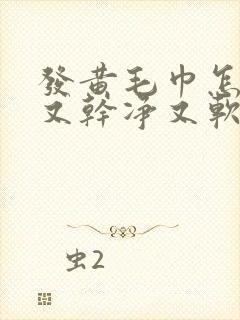 發黃毛巾怎
又幹淨又軟
虫2